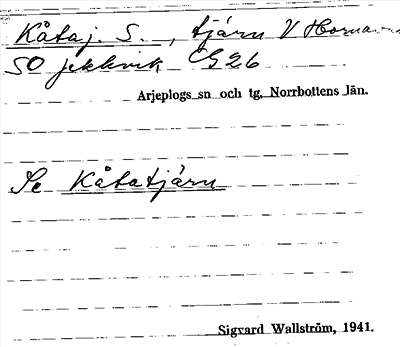 Kåtaj. S., tjärn V Hornavan
SO jekkvik G26
Arjeplogs sn och tg, Norrbottens län.
Se Kåtatjärn
Sigvard Wallström, 1941.